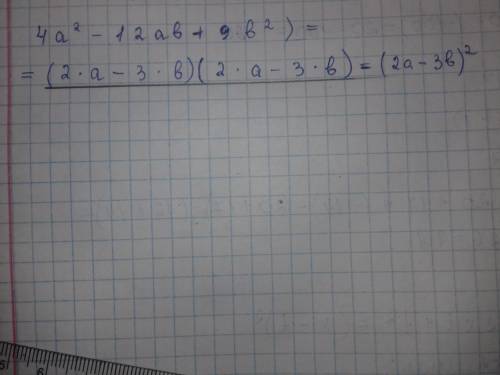 4a² - 12ab + 9·b²) =
= (2·a - 3·b)(2·a - 3·b) = (2a - 3b)²
6